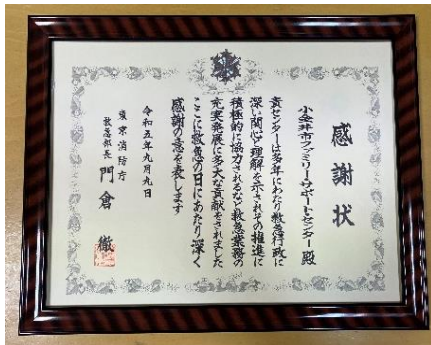 感謝状
小金井市ファミリーサポートセンター殿
貴センターは多年にわたり救急行政に
深い関心と理解を示されその推進に
積極的に協力されるなど救急業務の
充実発展に多大な貢献をされました
ここに救急の日にあたり深く
感謝の意を表します
令和五年九月九日
東京消防庁
救急部長 門倉徹